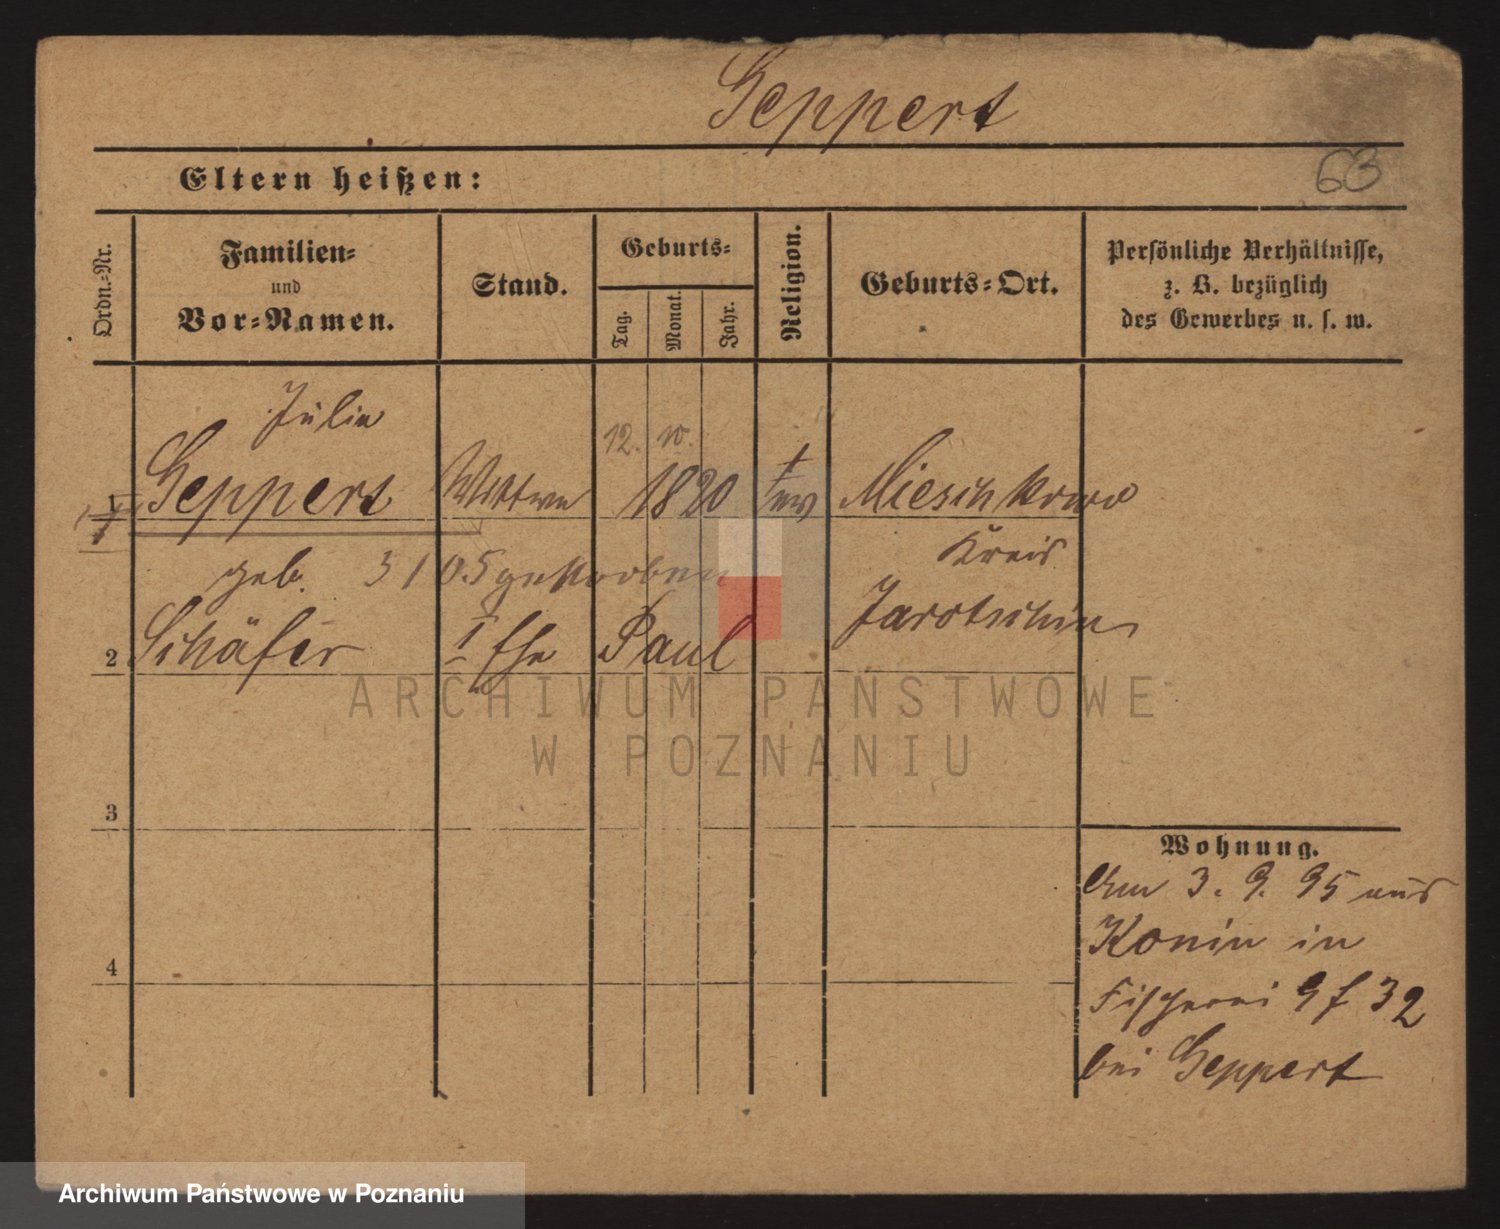 Geppert
63
Eltern heißen:
Ordn.=Nr.
Familien=
und
Vor=Namen.
Stand.
Geburts=
Tag.
Monat.
Jahr.
Religion.
Geburts=Ort.
Persönliche Verhältnisse,
z. B. bezüglich
des Gewerbes u. s. w.
Julie
12. 10.
Geppert Wittwe 1820 Mieschkowo
Kreis
geb. 3 1 05 gestorben
Jarotschin
2 Schäfer I Ehe Paul
3
4
Wohnung.
Am 3. 9. 95 aus
Konin in
Fischerei 32
bei Geppert
ARCHIWUM PAŃSTWOWE
W POZNANIU
Archiwum Państwowe w Poznaniu